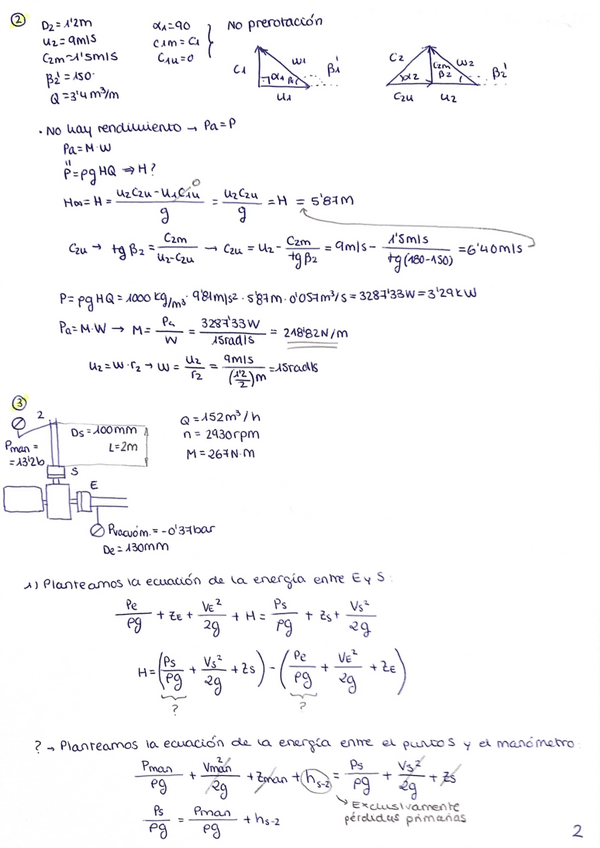 ②
D₂ = 1'2m
u₂ = 9m/s
C₂m = 1'5m/s
β₂' = 150°
Q = 3'4 m³/m
α₁ = 90
C₁m = C₁
C₁u = 0
No prerotación
C₁ w₁ β₁'
α₁ β₁
u₁
C₂ C₂m w₂
α₂ β₂ β₂'
C₂u u₂
· No hay rendimiento → Pa = P
Pa = M·W
"
P = ρgHQ ⇒ H?
H∞ = H = (u₂C₂u - u₁C₁u)/g = u₂C₂u/g = H = 5'87m
0
C₂u → tg β₂ = C₂m/(u₂-C₂u) → C₂u = u₂ - C₂m/tgβ₂ = 9m/s - 1'5m/s/tg(180-150) = 6'40m/s
P = ρgHQ = 1000 kg/m³ · 9'81m/s² · 5'87m · 0'057m³/s = 3287'33W = 3'29kW
Pa = M·W → M = Pa/W = 3287'33W/15rad/s = 218'82N/m
u₂ = W·r₂ → W = u₂/r₂ = 9m/s/(1'2/2)m = 15rad/s
③
2
Ds = 100mm
L = 2m
Pman =
= 13'2b
S
E
Pvacuóm. = -0'37bar
De = 130mm
Q = 152m³/h
n = 2930rpm
M = 267N·m
1) Planteamos la ecuación de la energía entre E y S:
Pe/ρg + ZE + VE²/2g + H = Ps/ρg + Zs + Vs²/2g
H = (Ps/ρg + Vs²/2g + Zs) - (Pe/ρg + VE²/2g + ZE)
? ?
? → Planteamos la ecuación de la energía entre el punto S y el manómetro:
Pman/ρg + Vman²/2g + Zman + hs-2 = Ps/ρg + Vs²/2g + Zs
Exclusivamente
pérdidas primarias
Ps/ρg = Pman/ρg + hs-2
2